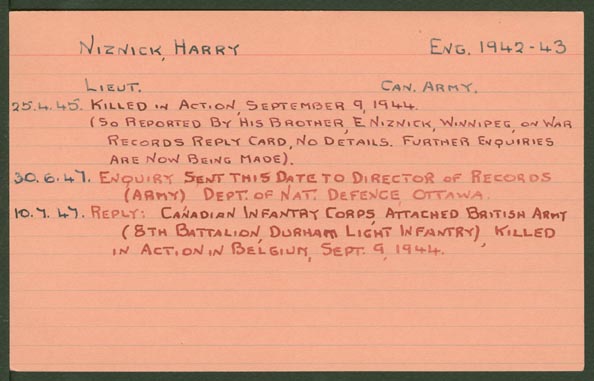 NIZNICK, HARRY ENG. 1942-43
LIEUT. CAN. ARMY.
25.4.45. KILLED IN ACTION, SEPTEMBER 9, 1944.
(SO REPORTED BY HIS BROTHER, E NIZNICK, WINNIPEG, ON WAR
RECORDS REPLY CARD, NO DETAILS. FURTHER ENQUIRIES
ARE NOW BEING MADE).
30.6.47. ENQUIRY SENT THIS DATE TO DIRECTOR OF RECORDS
(ARMY) DEPT. OF NAT. DEFENCE, OTTAWA.
10.7.47. REPLY: CANADIAN INFANTRY CORPS, ATTACHED BRITISH ARMY
(8TH BATTALION, DURHAM LIGHT INFANTRY), KILLED
IN ACTION IN BELGIUM, SEPT. 9, 1944.